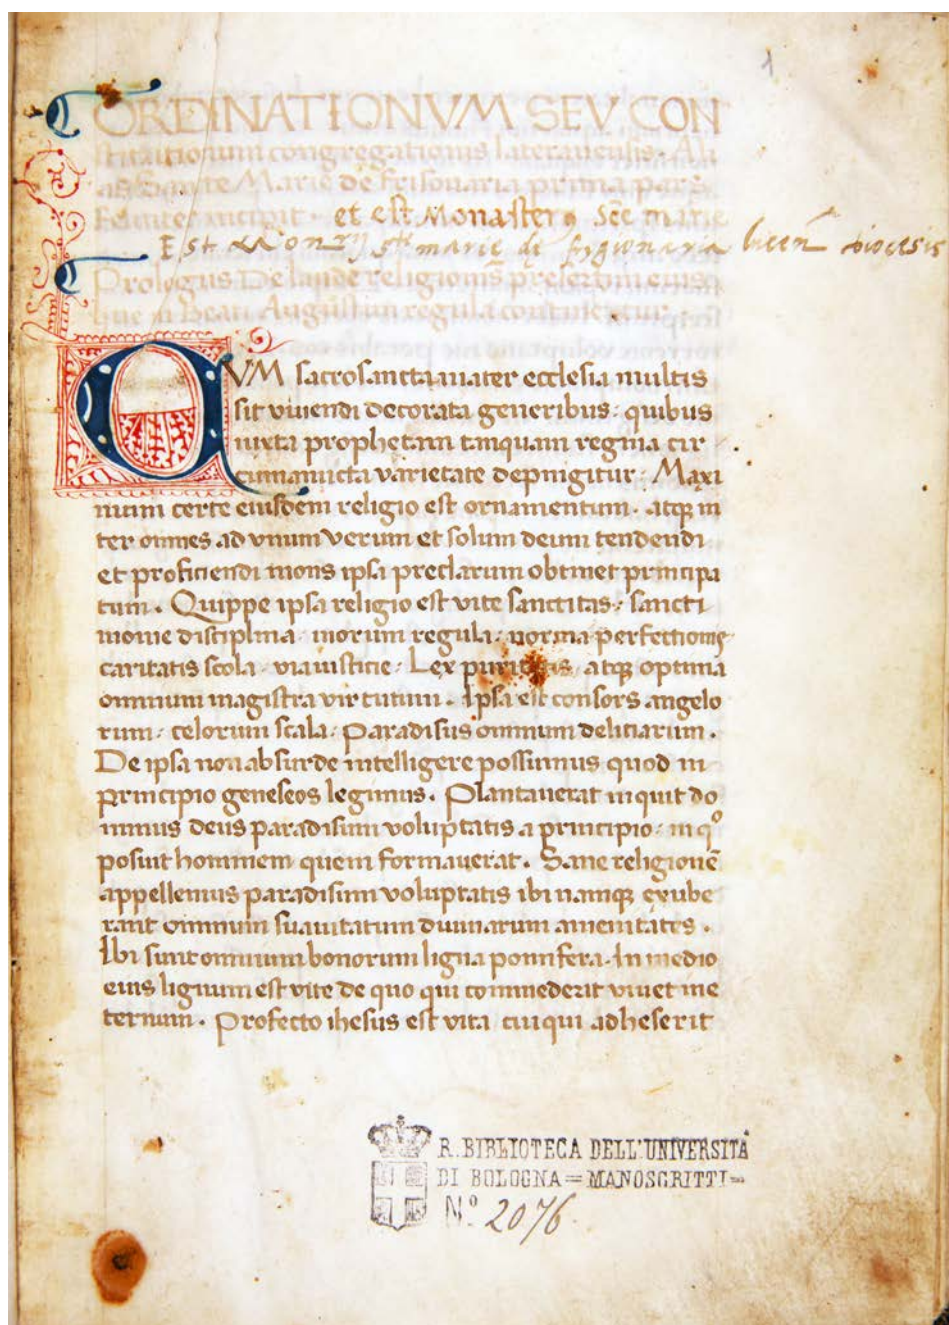 1
ORDINATIONVM SEV CON
stitutionum congregationis lateranensis. Ali
as Sancte Marie de frisonaria prima pars
feliciter incipit. et est Monasterꝯ Sc̄e marie
Est Mon rij ste marie de frigionaria lucen̄ diocesis
Prologus De laude religionis preserti eius
que in Beati Augustini regula continetur
QVM sacrosancta mater ecclesia multis
sit viuendi decorata generibus: quibus
iuxta prophetam tanquam regina cir
cumamicta varietate depingitur. Maxi
mum certe eiusdem religio est ornamentum. atqꝫ in
ter omnes ad vnum verum et solum deum tendendi
et proficiendi mons ipsa preclarum obtinet principa
tum. Quippe ipsa religio est vite sanctitas: sancti
monie disciplina: morum regula: norma perfectionis
caritatis scola. via iusticie: Lex puritatis atqꝫ optima
omnium magistra virtutum. Ipsa est consors angelo
rum: celorum scala: Paradisus omnium delitiarum.
De ipsa non absurde intelligere possumus quod in
principio geneseos legimus. Plantauerat inquit do
minus deus paradisum voluptatis a principio: in qº
posuit hominem quem formauerat. Sane religionē
appellemus paradisum voluptatis ibi namqꝫ exube
rant omnium suauitatum diuinarum amenitates.
Ibi sunt omnium bonorum ligna pomifera. In medio
eius lignum est vite de quo qui commederit viuet in e
ternum. Profecto ihesus est vita cui qui adheserit
R. BIBLIOTECA DELL'UNIVERSITÀ
DI BOLOGNA=MANOSCRITTI=
Nº 2076